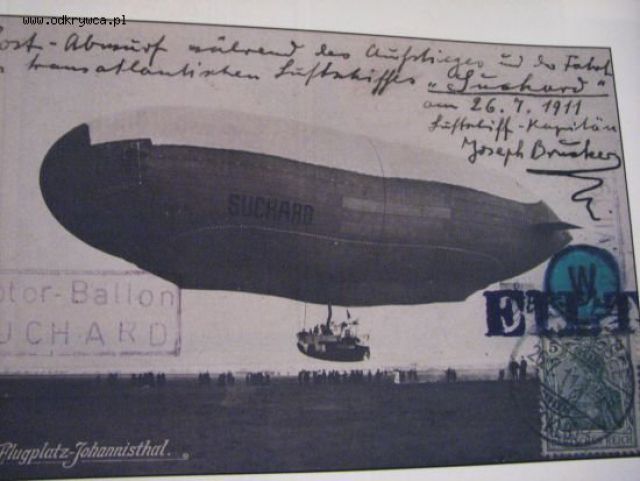 www.odkrywca.pl
Post-Abwurf während des Aufstieges und der Fahrt
transatlantischen Luftschiffes "Suchard"
am 26.7.1911
Luftschiff-Kapitän
Joseph Brucker
SUCHARD
otor-Ballon
UCHARD
W
5
REICH
Flugplatz-Johannisthal.